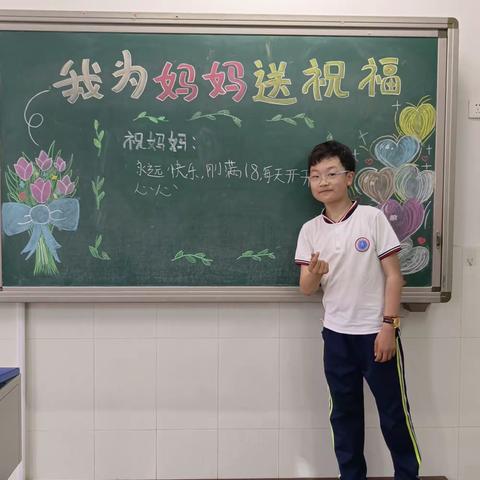 我为妈妈送祝福
祝妈妈：
永远快乐，刚满18，每天开开
心心